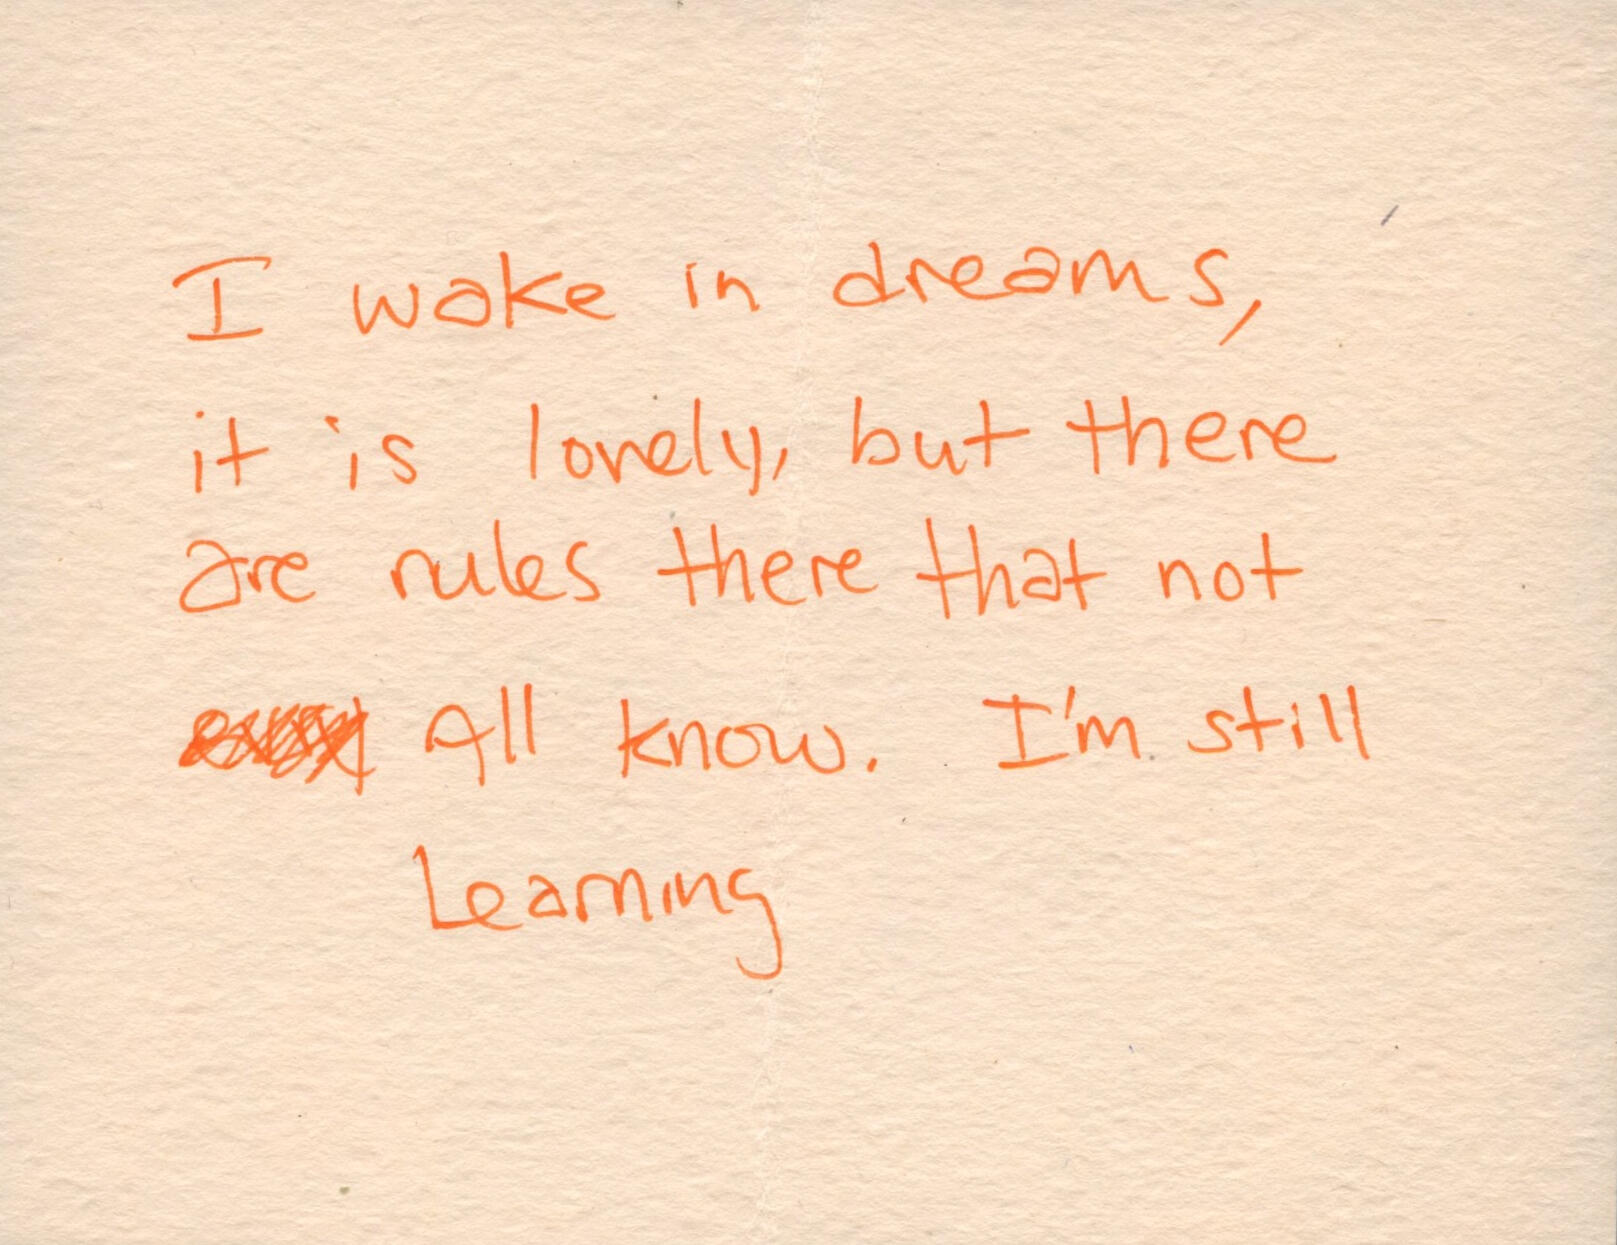 I wake in dreams,
it is lovely, but there
are rules there that not
All know. I'm still
Learning